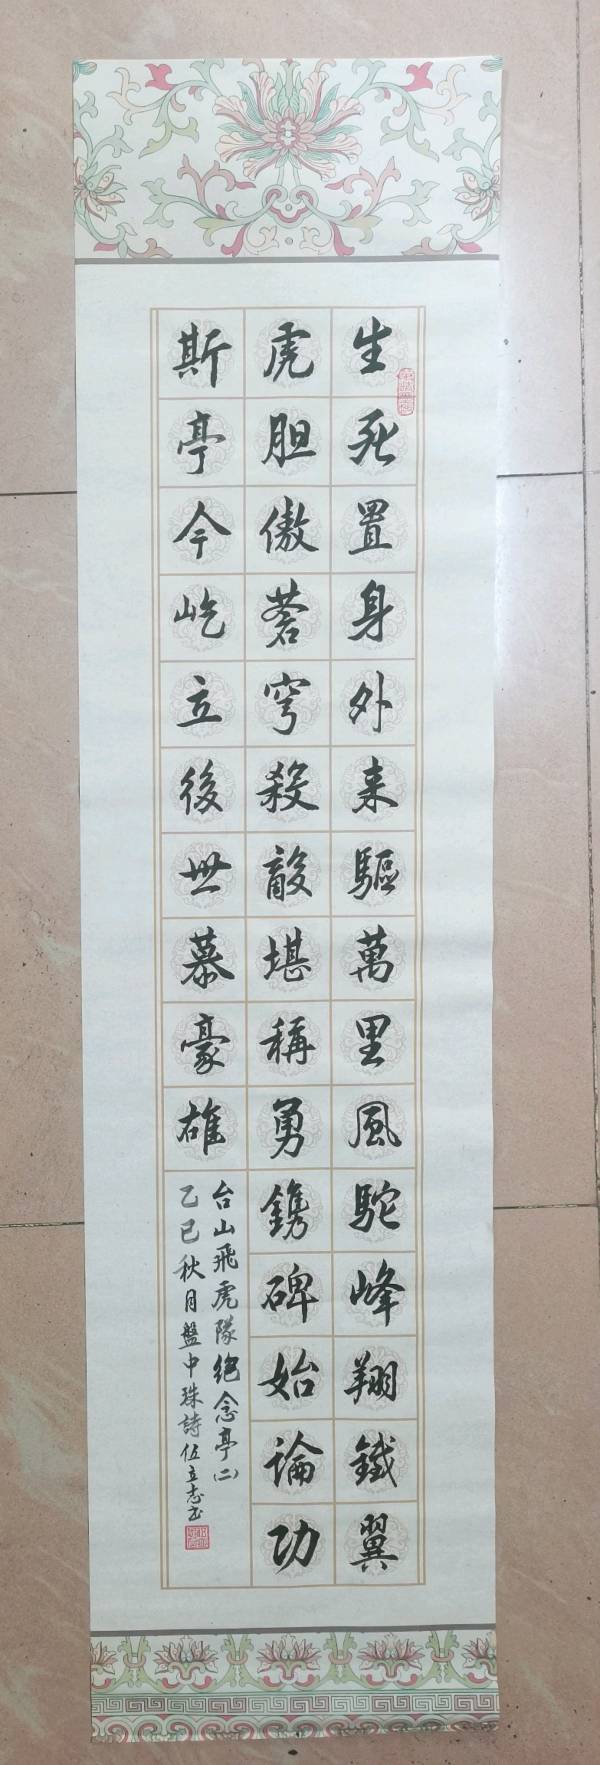 生死置身外来驅萬里風駝峰翔鐵翼
虎胆傲蒼穹殺敵堪稱勇鐫碑始論功
斯亭今屹立後世慕豪雄
台山飛虎隊紀念亭(二)
乙巳秋月盤中珠詩伍立志书